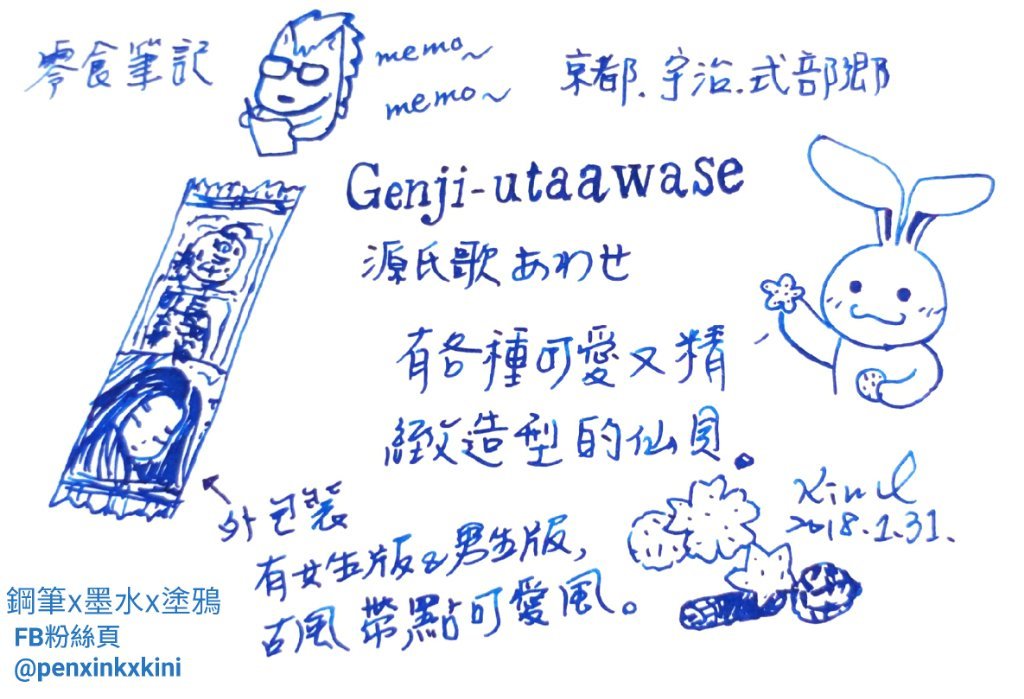 零食筆記
memo~
memo~
京都.宇治.式部郷
Genji-utaawase
源氏歌あわせ
有各種可愛又精
緻造型的仙貝。
外包裝
有女生版&男生版,
古風帶點可愛風。
2018.1.31.
鋼筆x墨水x塗鴉
FB粉絲頁
@penxinkxkini